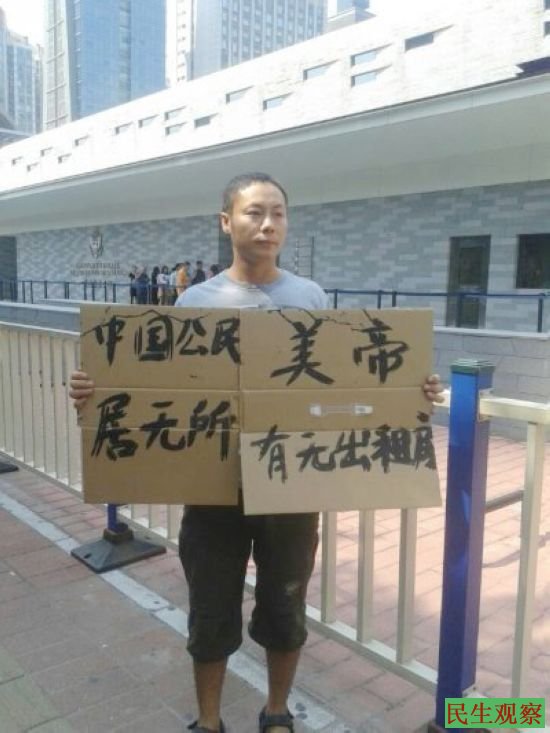 中国公民
居无所
美帝
有无出租房
民生观察